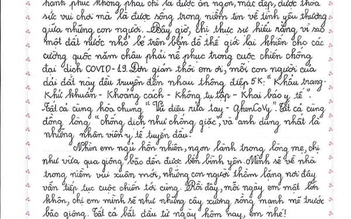 hạnh phúc không phải chỉ là được ăn ngon, mặc đẹp, được thỏa
sức vui chơi mà là được sống trong niềm tin về tình yêu thương
giữa những con người. Bây giờ, chị thực sự hiểu rằng, vì sao
một đất nước nhỏ bé trên bản đồ thế giới lại khiến cho các
cường quốc năm châu phải nể phục trong cuộc chiến chống
đại dịch COVID-19. Đơn giản thôi em ơi, mỗi con người của
dải đất này đều truyền đến nhau thông điệp 5K: "Khẩu trang -
Khử khuẩn - Khoảng cách - Không tụ tập - Khai báo y tế".
Tất cả cùng hòa chung "Vũ điệu rửa tay - GhenCôVy". Tất cả cùng
đồng lòng "chống dịch như chống giặc", và anh dũng nhất là
những nhân viên y tế tuyến đầu.
Nhìn em ngủ hồn nhiên, ngon lành trong lòng mẹ, chị
như vừa qua giông bão đến được bến bình yên. Mình sẽ về nhà
trong niềm vui xuân mới, những con người thầm lặng nơi đây
vẫn tiếp tục cuộc chiến tới cùng. Rồi đây, mỗi ngày em mặt lớn
khôn, chị em mình sẽ như những cây xương rồng mạnh mẽ trước
bão giông. Tất cả bắt đầu từ ngày hôm nay, em nhé!